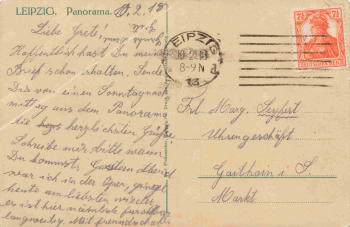 LEIPZIG. Panorama.
3.2.18
Liebe Grete!
Hoffentlich hast Du meinen
Brief schon erhalten. Sende
Dir von einem Sonntagnach-
mittag aus dem Panorama
die herzlichsten Grüße
Schreibe mir bitte wann
Du kommst, Gestern abend
war ich in der Oper,
heute am liebsten wieder
er ist hier nämlich furchtbar
langweilig. Mit freundschaftl.
LEIPZIG
8-9 N
7½
Frl. Marg. Seyfert
Uhrengeschäft
Geithain i. S.
Markt